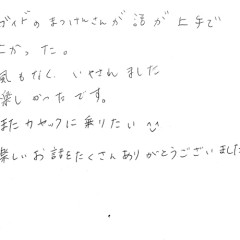 ガイドのまつけんさんが話が上手で
よかった。
風もなく、いやされました
楽しかったです。
またカヤックに乗りたい ^^
楽しいお話をたくさんありがとうございました